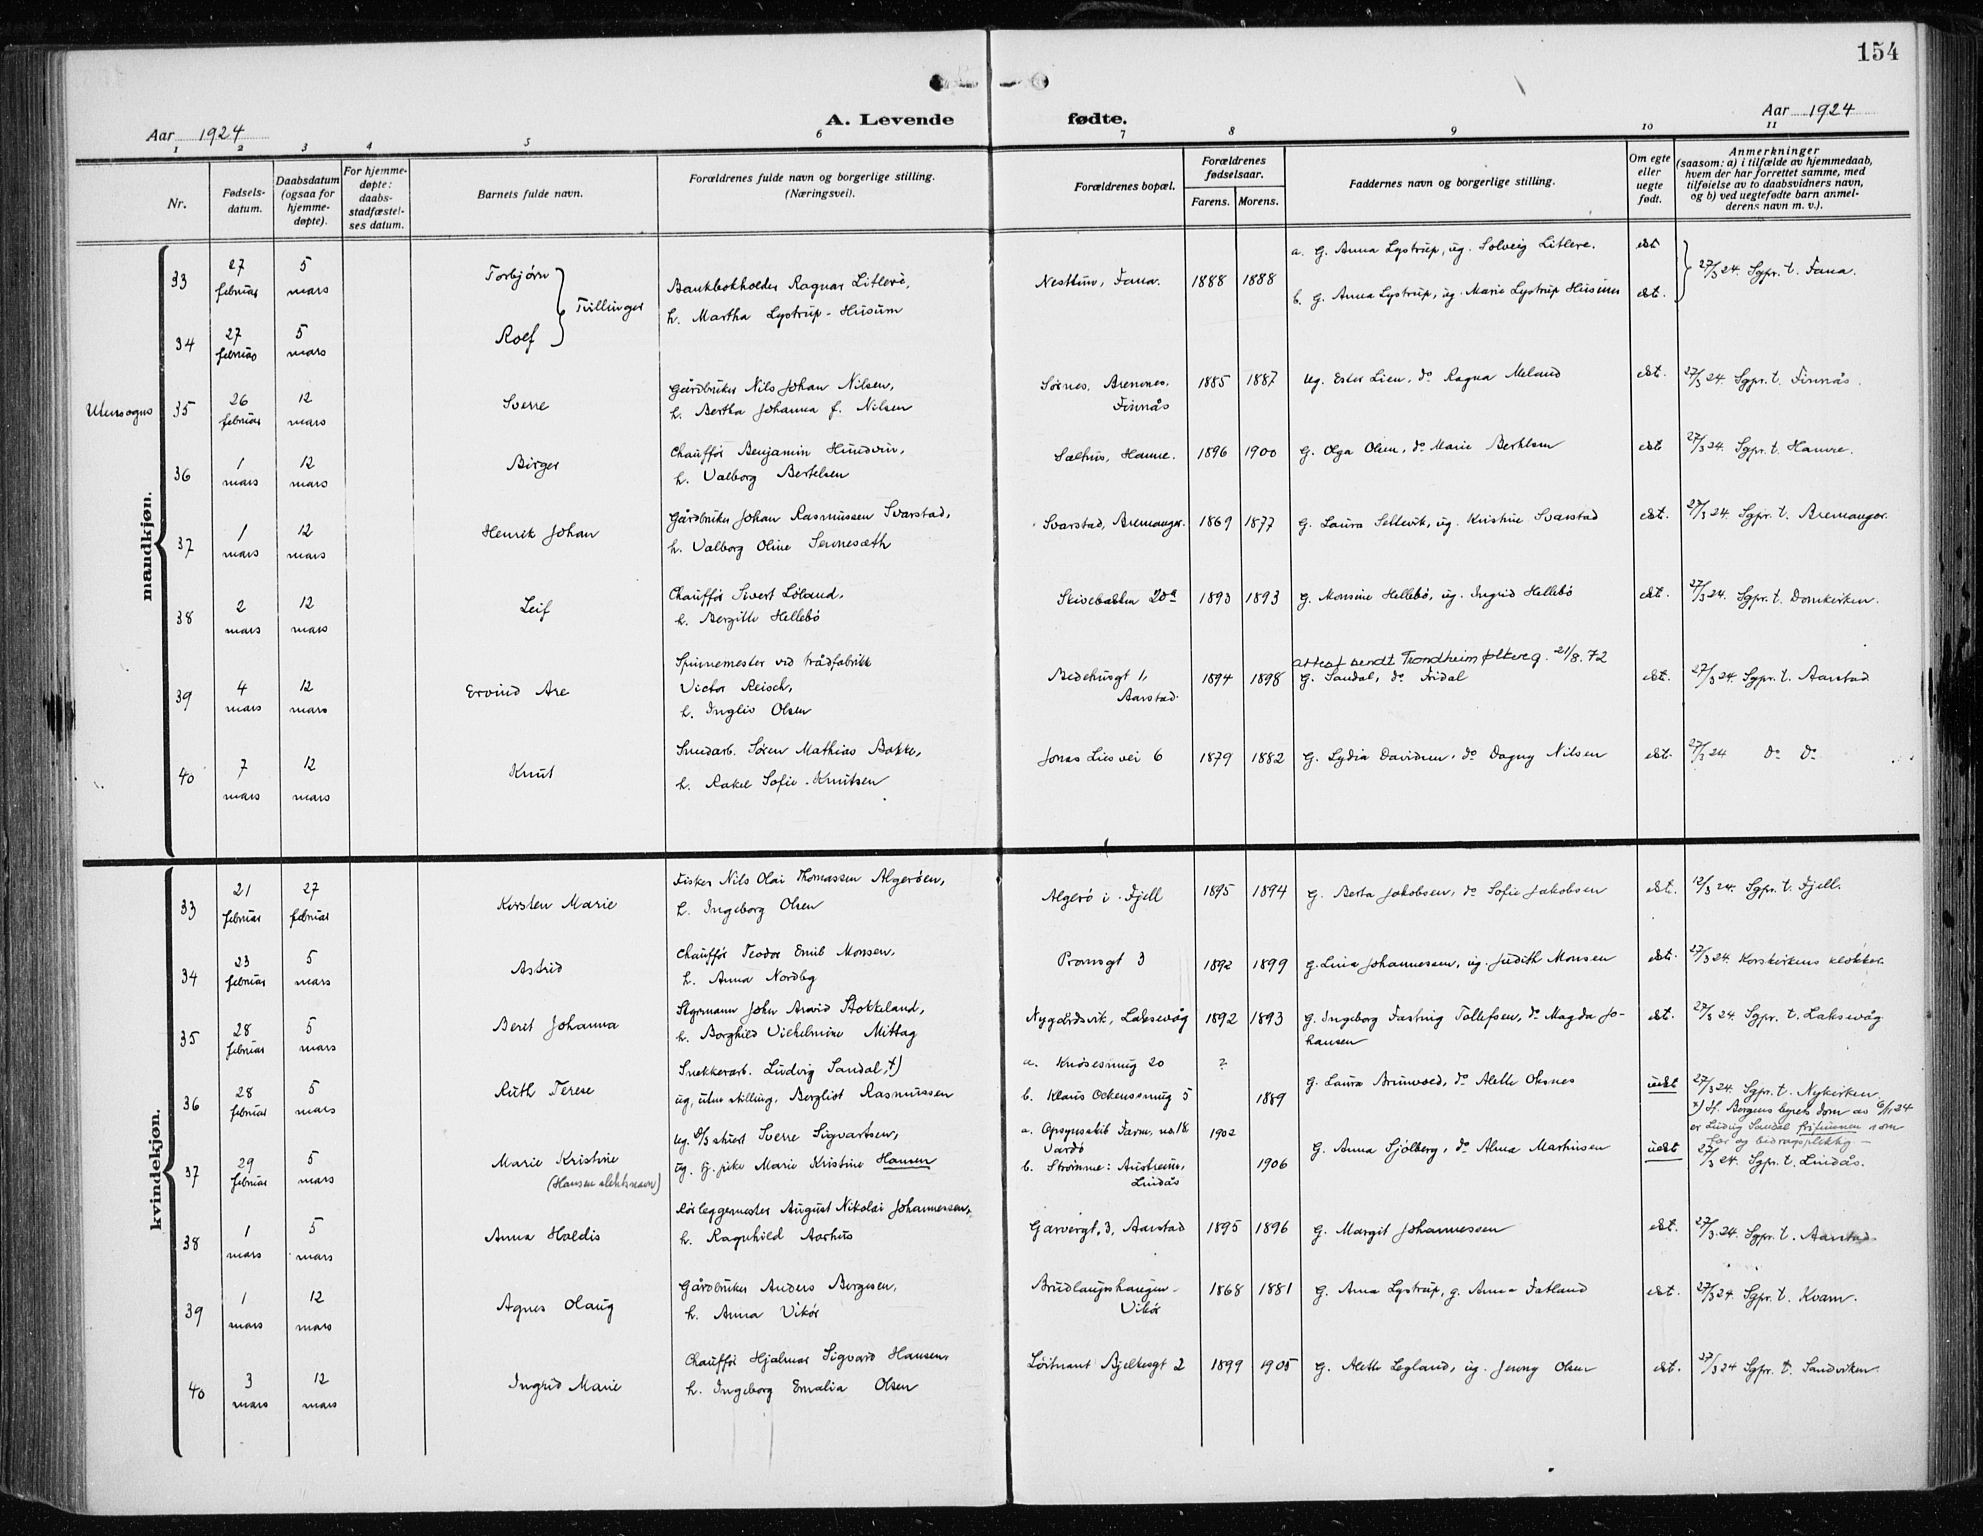 154
Aar 1924
A. Levende fødte.
Aar 1924
1 2 3 4 5 6 7 8 9 10 11
Nr.
Fødsels-
datum.
Daabsdatum
(ogsaa for
hjemme-
døpte).
For hjemme-
døpte:
daabs-
stadfæstel-
ses datum.
Barnets fulde navn.
Forældrenes fulde navn og borgerlige stilling.
(Næringsvei).
Forældrenes bopæl.
Forældrenes
fødselsaar.
Farens. Morens.
Faddernes navn og borgerlige stilling.
Om egte
eller
uegte
født.
Anmerkninger
(saasom: a) i tilfælde av hjemmedaab,
hvem der har forrettet samme, med
tilføielse av to daabsvidners navn,
og b) ved uegtefødte barn anmel-
derens navn m. v.).
mandkjøn.
33 27 februar 5 mars Torbjørn Tvillinger
Bankbokholder Ragnar Litleré,
h. Martha Lystrup-Husum
Nesttun, Fana. 1888 1888
a. G. Anna Lystrup, ug. Solveig Litlere. ekt
b. G. Anna Lystrup, ug. Marie Lystrup Husum ekt.
27/3 24. Sgpr. t. Fana.
34 27 februar 5 mars Rolf
Utensogns 35 26 februar 12 mars Sverre
Gårdbruker Nils Johan Nilsen,
h. Bertha Johanna f. Nilsen
Sørnes, Bremnes,
Finnås
1885 1887 ug. Ester Lien, do Ragna Meland ekt. 27/3 24. Sgpr. t. Finnås.
36 1 mars 12 mars Birger
Chauffør Benjamin Hundvin,
h. Valborg Bertelsen
Sælhus, Hamre. 1896 1900 G. Olga Olsen, do Marie Bertelsen ekt 27/3 24. Sgpr. t. Hamre.
37 1 mars 12 mars Henrik Johan
Gårdbruker Johan Rasmussen Svarstad,
h. Valborg Oline Sennesæth
Svarstad, Bremanger. 1869 1877 G. Laura Settevik, ug. Kristine Svarstad ekt. 27/3 24. Sgpr. t. Bremanger.
38 2 mars 12 mars Leif
Chauffør Sivert Løland,
h. Bergitte Hellebö
Skivebakken 20a 1893 1893 G. Monsine Hellebö, ug. Ingrid Hellebö ekt. 27/3 24. Sgpr. t. Domkirken.
39 4 mars 12 mars Ervind Are
Spinnemester ved trådfabrikk
Victor Reisch,
h. Ingliv Olsen
Bedehusgt 1,
Aarstad.
1894 1898
attest sendt Trondheim folkereg. 21/8.72
G. Sandal, do Fridal ekt. 27/3 24. Sgpr. t. Aarstad
40 7 mars 12 mars Knut
Smedarb. Sören Mathias Bakke,
h. Rakel Sofie Knutsen
Jonas Liesvei 6 1879 1882 G. Lydia Davidsen, do Dagny Nilsen ekt. 27/3 24 do do
kvindekjøn.
33 21 februar 27 februar Kirsten Marie
Fisker Nils Olai Thomassen Algerøen,
h. Ingeborg Olsen
Algerø i Fjell 1895 1894 G. Berta Jakobsen, do Sofie Jakobsen ekt. 12/3 24. Sgpr. t. Fjell.
34 23 februar 5 mars Astrid
Chauffør Teodor Emil Monsen,
h. Anna Nordby
Pramsgt 3 1892 1899 G. Lina Johannessen, ug. Judith Monsen ekt. 27/3 24. Korskirkens klokker.
35 28 februar 5 mars Berit Johanna
Styrmann John Arvid Stokkeland,
h. Borghild Vilhelmine Mittag
Nygårdsvik, Laksevåg 1892 1893 G. Ingeborg Fasting Tollefsen, do Magda Jo-
hansen
ekt. 27/3 24. Sgpr. t. Laksevåg
36 28 februar 5 mars Ruth Terese
Snekkerarb. Ludvig Sandal, †)
ug, uten stilling, Bergliot Rasmussen
a. Knøsesmug 20 ?
b. Klaus Ockensmug 5 1889
G. Laura Brunvoed, do Alette Oksnes uekt 27/3 24. Sgpr. t. Nykirken
†) If. Bergens byrets dom av 6/11 24
er Ludvig Sandal frifunnen som
far og bidragspliktig –
37 29 februar 5 mars Marie Kristine
(Hansen slektsnavn)
ug. D/S stuert Sverre Sigvartsen,
ug. tj. pike Marie Kristine Hansen
a. Opsynsskib Farm, no. 18
Vardö
1902
b. Strømme: Austrem,
Lindås
1906
G. Anna Sjölberg, do Alma Martinsen uekt 27/3 24. Sgpr. t. Lindås.
38 1 mars 5 mars Anna Haldis
Rörleggermester August Nikolai Johannessen,
h. Ragnhild Aarhus
Garvergt. 3, Aarstad 1895 1896 G. Margit Johannessen ekt. 27/3 24. Sgpr. t. Aarstad
39 1 mars 12 mars Agnes Olaug
Gårdbruker Anders Bergesen,
h. Anna Vikør
Brudlaupshaugen
Vikör
1868 1881 G. Anna Lystrup, g. Anna Fatland ekt. 27/3 24. Sgpr. t. Kvam.
40 3 mars 12 mars Ingrid Marie
Chauffør Hjalmar Sigvard Hansen,
h. Ingeborg Emalia Olsen
Löitnant Bjelkesgt 2 1899 1905 G. Alette Legland, ug. Jenny Olsen ekt. 27/3 24 Sgpr. t. Sandviken.